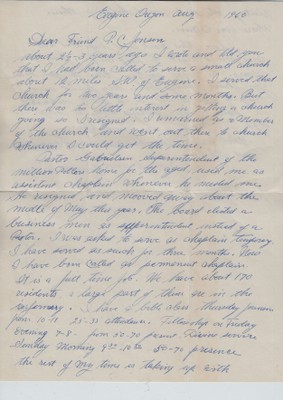 Eugene Oregon Aug 1966
Dear Friend P. C. Jensen
About 2½-3 years ago I wrote and told you
that I had been called to serve a small church
about 12 miles S.W. of Eugene. I served that
church for two years and some months. But
there was so little interest in getting a church
going so I resigned. I remained as a Member
of the church and went out there to church
whenever I could get the time.
Pastor Gabrielsen superintendent of the
home for the aged used me as
assistent chaplain whenever he needed one.
He resigned and mooved away about the
middle of May this year. The board elected a
business man as superintendent insted of a
Pastor. I was asked to serve as chaplain temporary
I have served as such for three months. Now
I have been called as permanent chaplain.
It is a full time job. We have about 170
residents a large part of them are in the
infirmary. I have a bible class thursday
25-35 attendence. Fellowship on Friday
evening 7-8 60-70 present. Service
Sunday Morning 50-70 presence
the rest of my time is taken up with